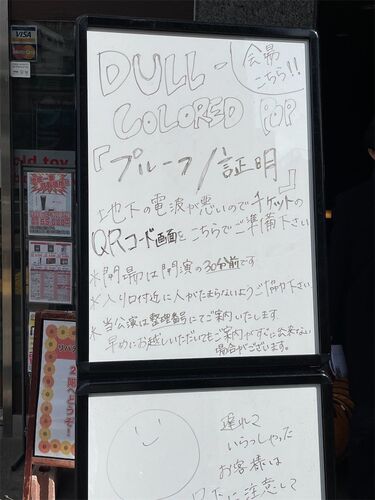 DULL-
COLORED POP
会場
こちら!!
『プルーフ/証明』
地下の電波が悪いのでチケットの
QRコード画面をこちらでご準備下さい
※開場は開演の30分前です
※入り口付近に人がたまらないようご協力下さい
※当公演は整理番号にてご案内いたします
早めにお越しいただいてもご案内がすぐに出来ない
場合がございます。
遅れて
いらっしゃった
お客様は
足下に注意して
VISA
MasterCard